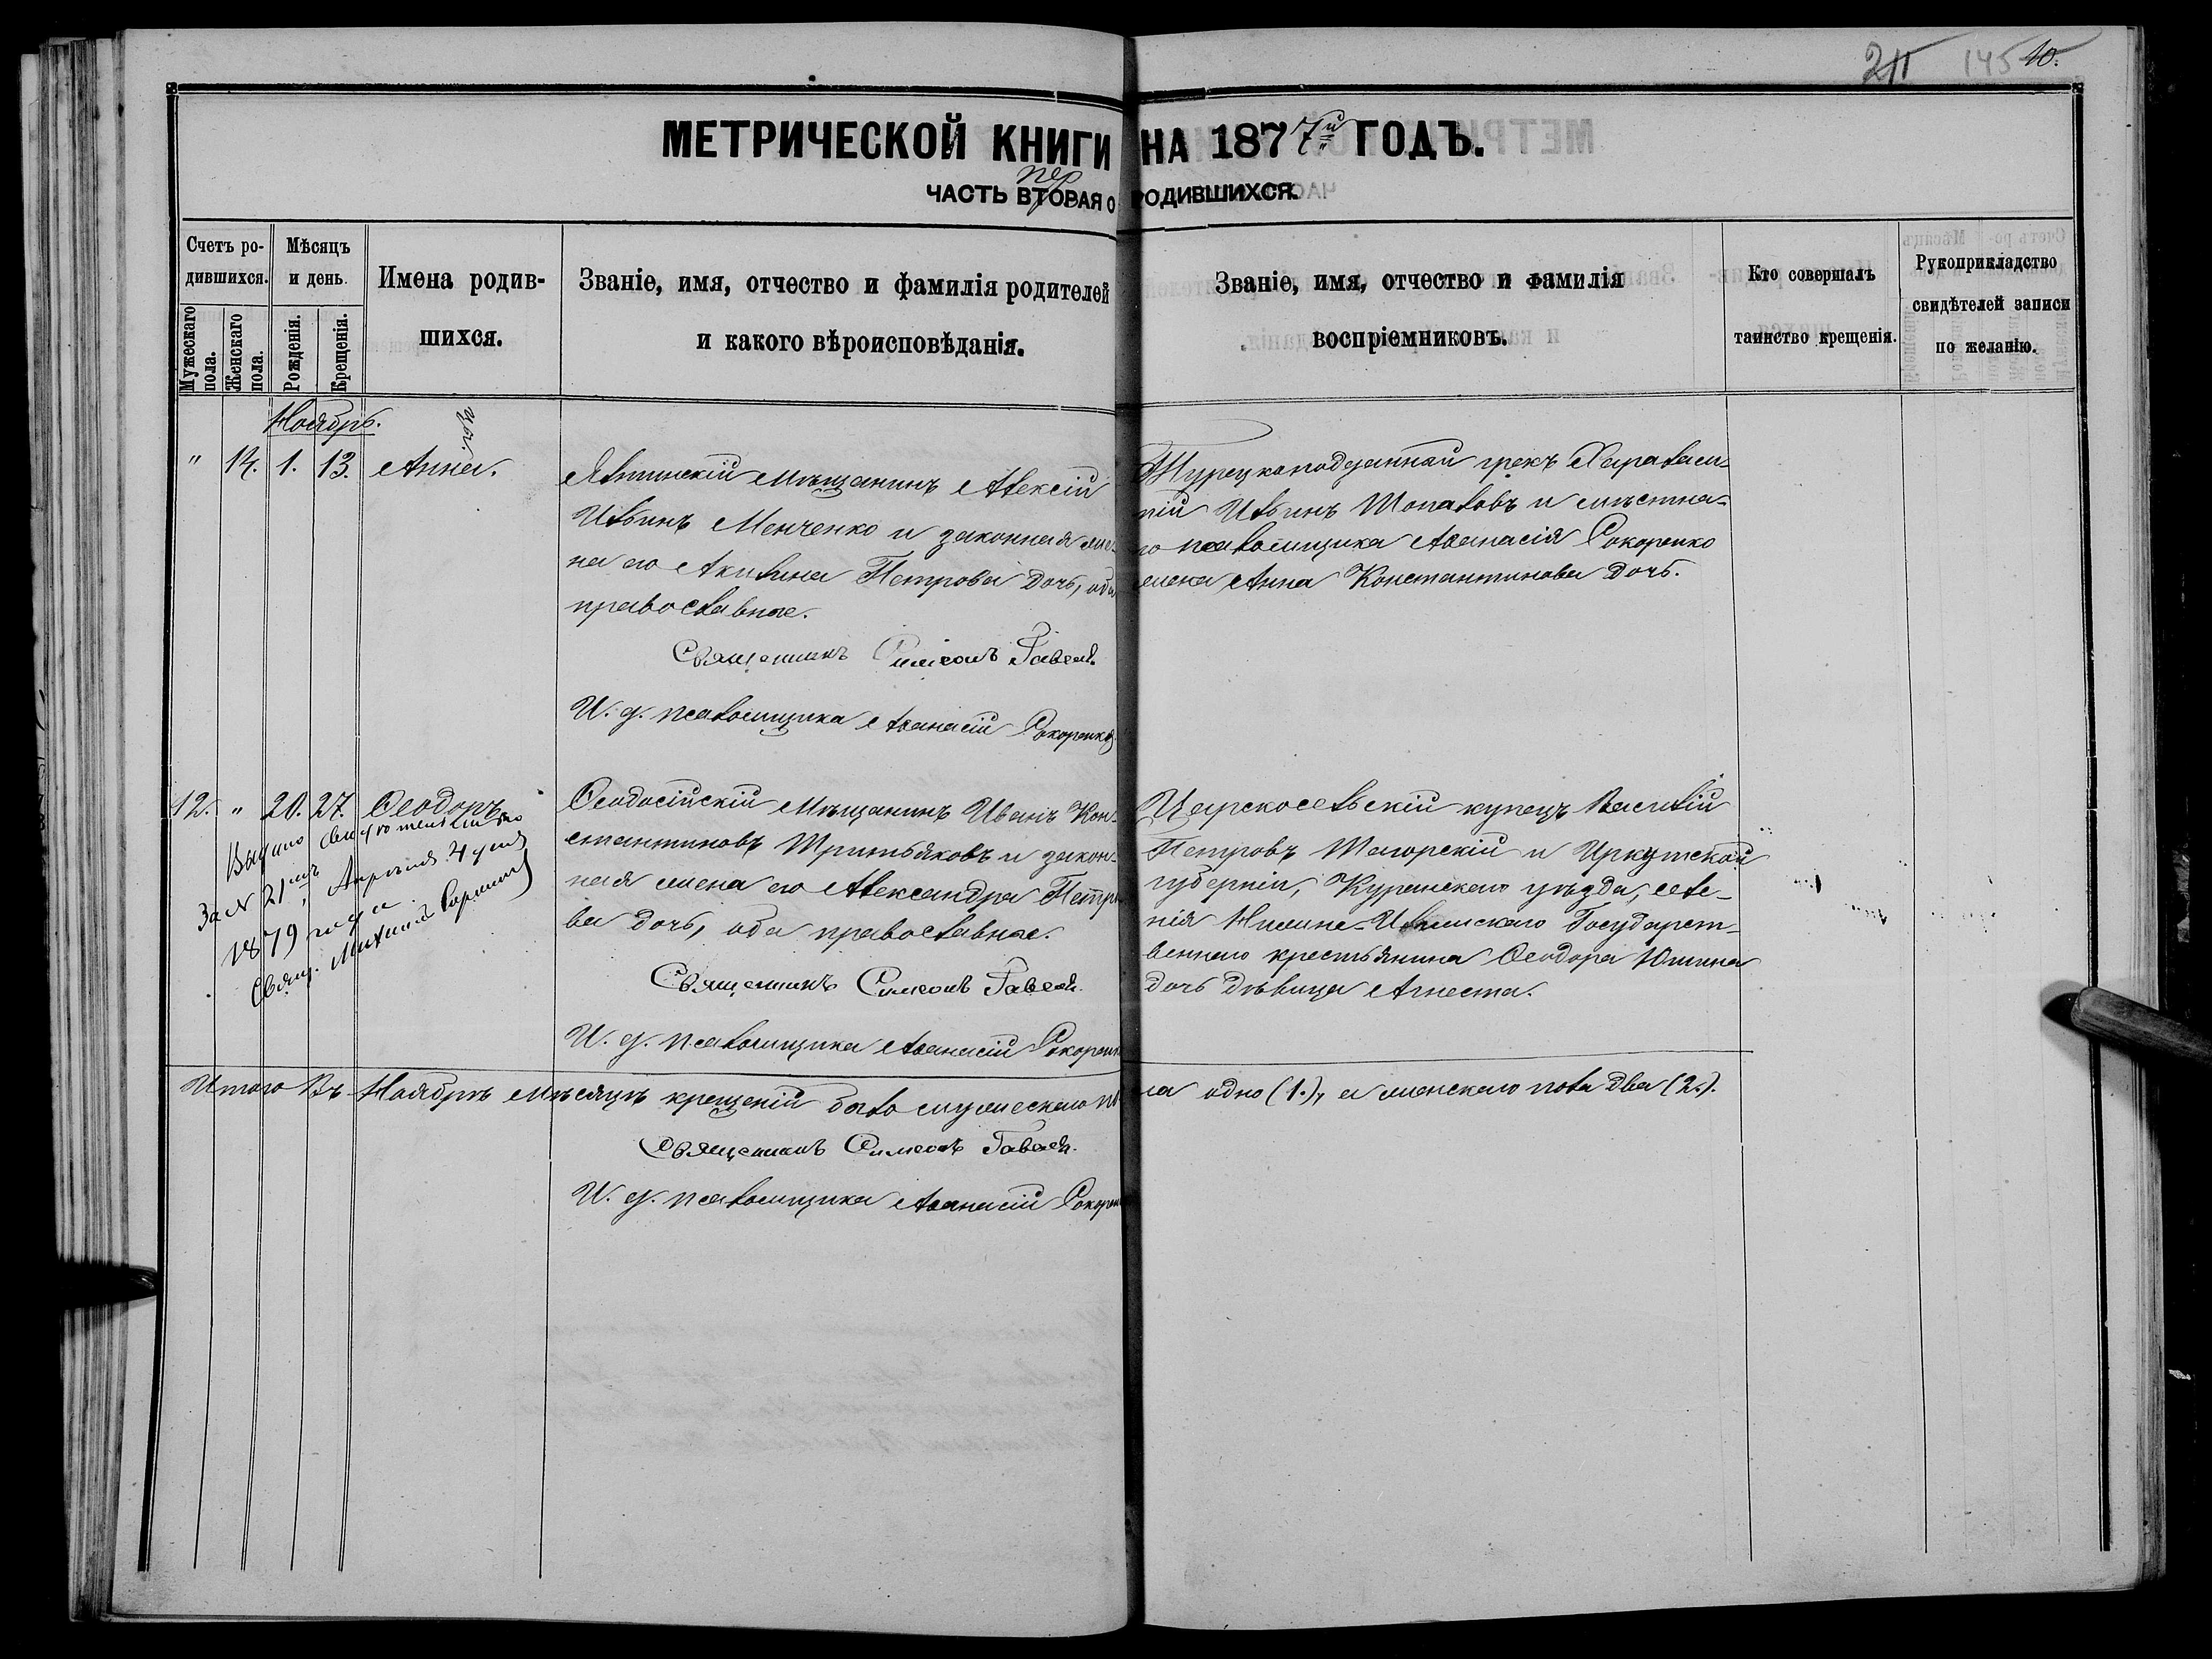 145 10.
МЕТРИЧЕСКОЙ КНИГИ НА 1877й ГОДЪ.
пер
ЧАСТЬ ВТОРАЯ О РОДИВШИХСЯ.
Счетъ родившихся.
Мужескаго пола.
Женскаго пола.
Мѣсяцъ и день.
Рожденія.
Крещенія.
Имена родившихся.
Званіе, имя, отчество и фамилія родителей
и какого вѣроисповѣданія.
Званіе, имя, отчество и фамилія
воспріемниковъ.
Кто совершалъ
таинство крещенія.
Рукоприкладство
свидѣтелей записи
по желанію.
Ноябрь.
" 14. 1. 13. Анна.
Ялтинскій мѣщанинъ Алексій
Ильинъ Менченко и законная же-
на его Акилина Петрова дочь, оба
православные.
Священникъ Симеонъ
И. д. псаломщика Аѳанасій Сокоренко
Турецкоподданный грекъ Харалам-
пій Ильинъ Шопаловъ и мѣстна-
го псаломщика Аѳанасія Сокоренко
жена Анна Константинова дочь.
12. " 20. 27. Ѳеодоръ.
Выдано свидѣтельство
за № 21мъ, Апрѣля 4 дня
1879 года.
Свящ. Михаилъ
Ѳеодосійскій мѣщанинъ Иванъ Кон-
стантиновъ Третьяковъ и закон-
ная жена его Александра Петро
ва дочь, оба православные.
Священникъ Симеонъ
И. д. псаломщика Аѳанасій Сокоренк
Царскосельскій купецъ Василій
Петровъ Шагорскій и Иркутской
губерніи, Куранскаго уѣзда, селе-
нія Нижне-Илимскаго Государст-
веннаго крестьянина Ѳеодора Юшина
дочь дѣвица Агнеста.
Итого въ Ноябрѣ мѣсяцѣ крещеній было мужескаго по
ла одно (1.), а женскаго пола два (2.).
Священникъ Симеонъ
И. д. псаломщика Аѳанасій Сокорен